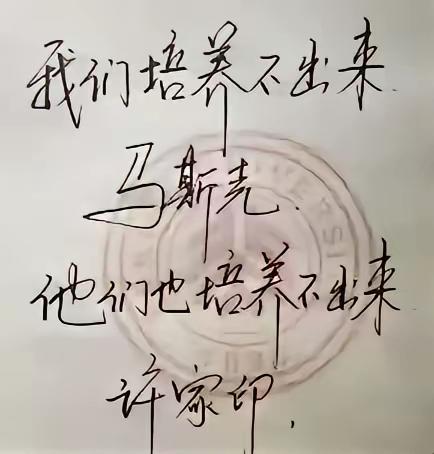 我们培养不出来
马斯克.
他们也培养不出来
许家印.